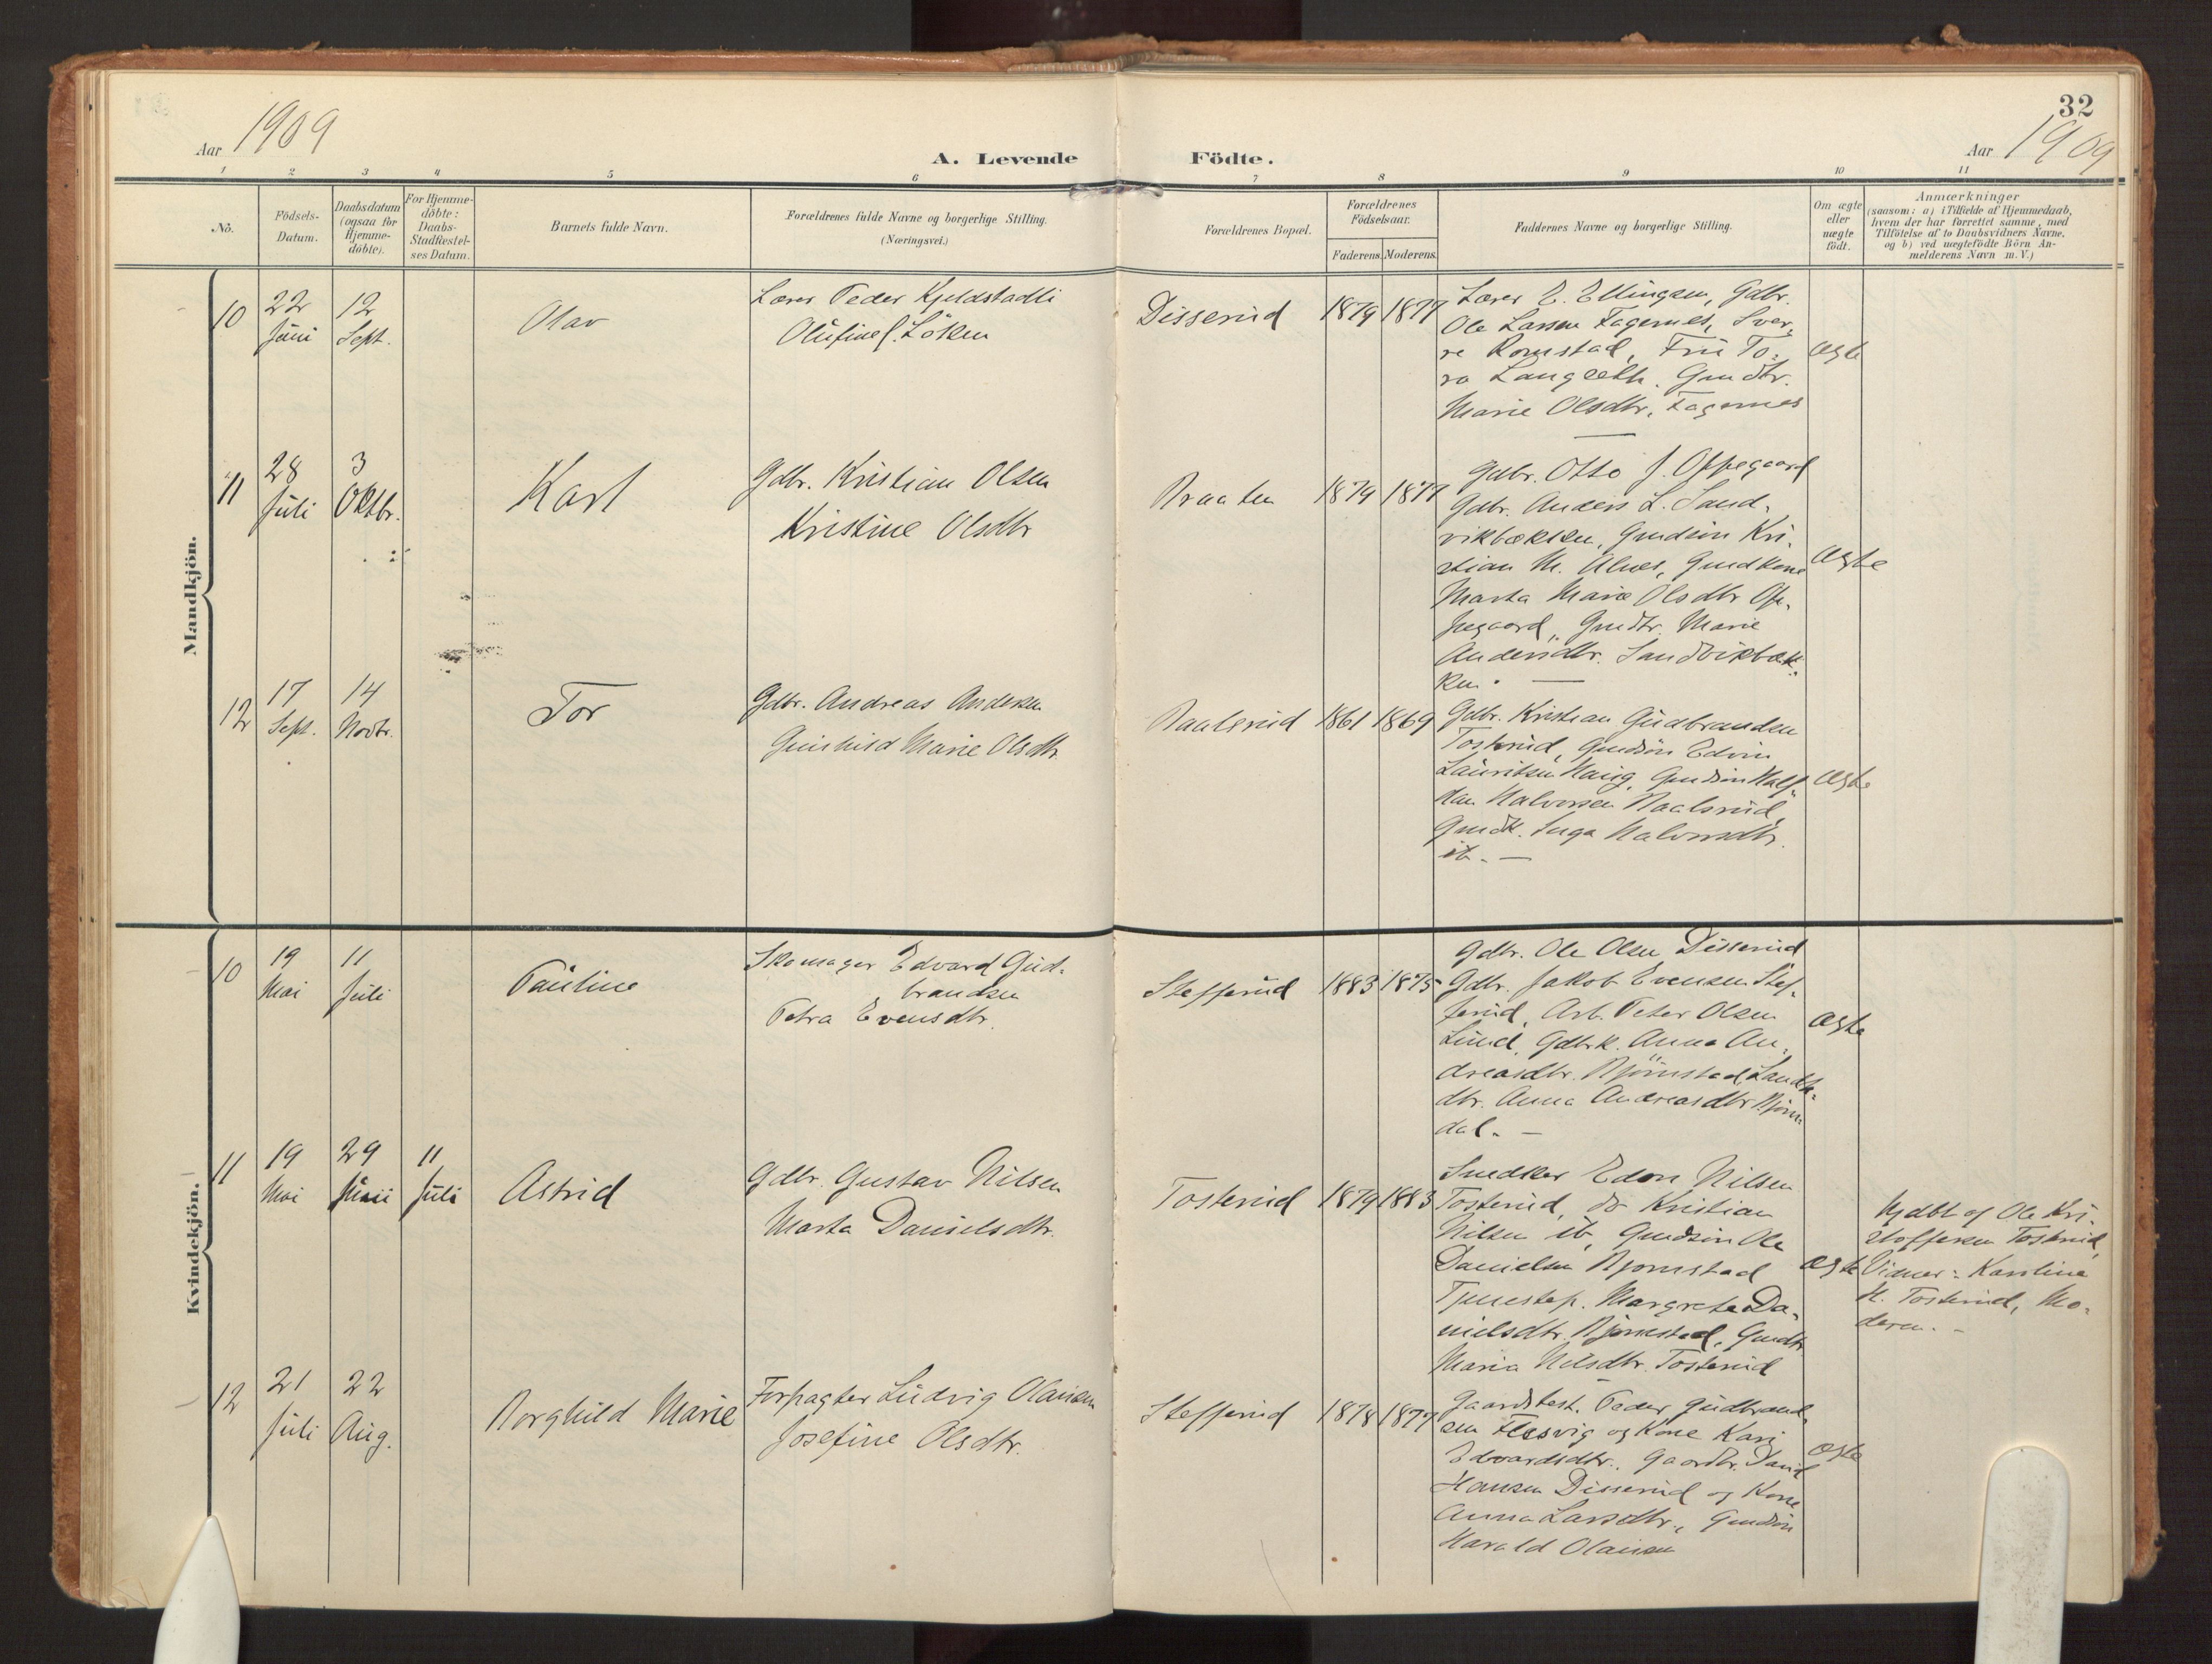 32
Aar 1909
A. Levende Födte.
Aar 1909
1 2 3 4 5 6 7 8 9 10 11
Nò.
Födsels-
Datum.
Daabsdatum
(ogsaa for
Hjemme-
döbte).
For Hjemme-
döbte:
Daabs-
Stadfæstel-
ses Datum.
Barnets fulde Navn.
Forældrenes fulde Navne og borgerlige Stilling.
(Næringsvei.)
Forældrenes Bopæl.
Forældrenes
Födselsaar.
Faderens. Moderens.
Faddernes Navne og borgerlige Stilling.
Om ægte
eller
uægte
födt.
Anmærkninger
(saasom: a) i Tilfælde af Hjemmedaab,
hvem der har forrettet samme, med
Tilföielse af to Daabsvidners Navne,
og b) ved uægtefödte Börn An-
melderens Navn m. V.)
Mandkjön.
10
22
Juni
12
Sept.
Olav
Lærer Peder Kjeldstadli
Olufine f. Löken
Disserud
1879 1877
Lærer E. Ellingsen, Gdbr.
Ole Larsen Fagernes, Sver-
re Romstad, Fru To-
ra Langseth. Gmdtr.
Marie Olsdtr. Fagernes
ægte
11
28
Juli
3
Oktbr.
Karl
Gdbr. Kristian Olsen
Kristine Olsdtr
Braaten
1879 1877
Gdbr. Otto J. Oppegaard
Gdbr. Anders L. Sand-
vikbækken, Gmdsön Kri-
stian M. Alnes, Gmdkone
Marta Marie Olsdtr Op-
pegaard, Gmdtr. Marie
Andersdtr. Sandvikbæk-
ken. —
ægte
12
17
Sept.
14
Novbr.
Tor
Gdbr. Andreas Andersen
Gunhild Marie Olsdtr.
Raalsrud
1861 1869
Gdbr. Kristian Gudbrandsen
Tosterud, Gmdsön Edvin
Lauritsen Haug, Gmdsön Half-
dan Halvorsen Raalsrud,
Gmdk. Inga Halvorsdtr.
ib. —
ægte
Kvindekjön.
10
19
Mai
11
Juli
Pauline
Skomager Edvard Gud-
brandsen
Petra Evensdtr.
Stefferud
1883 1875
Gdbr. Ole Olsen Disserud
Gdbr. Jakob Evensen Stef-
ferud, Arb. Peter Olsen
Lund, Gdbrk. Anna An-
dreasdtr. Björnstad,
dtr. Anna Andreasdtr Björn-
dal. —
ægte
11
19
Mai
29
Juni
11
Juli
Astrid
Gdbr. Gustav Nilsen
Marta Danielsdtr.
Tosterud
1879 1883
Snedker Edon Nilsen
Tosterud, do Kristian
Nilsen ib, Gmdsön Ole
Danielsen Bjornstad
Tjenestep. Margrete Da-
nielsdtr. Bjornstad, Gmdtr.
Maria Nilsdtr. Tosterud
ægte
Hjdbt af Ole Kri-
stoffersen Tosterud,
Vidner: Karoline
H. Tosterud, Mo-
deren. —
12
21
Juli
22
Aug.
Borghild Marie
Forpagter Ludvig Olausen
Josefine Olsdtr.
Stefferud
1878 1877
Gaardbest. Peder Gudbrand-
sen Flesvig og Kone Kari
Edvardsdtr., Gaardbr. David
Hansen Disserud og Kone
Anna Larsdtr., Gmdsön
Harald Olausen
ægte